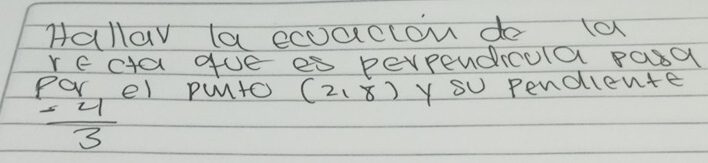 Hallar la ecuación de la
recta que es perpendicula pasa
por el punto (2,8) y su pendiente
-4
3